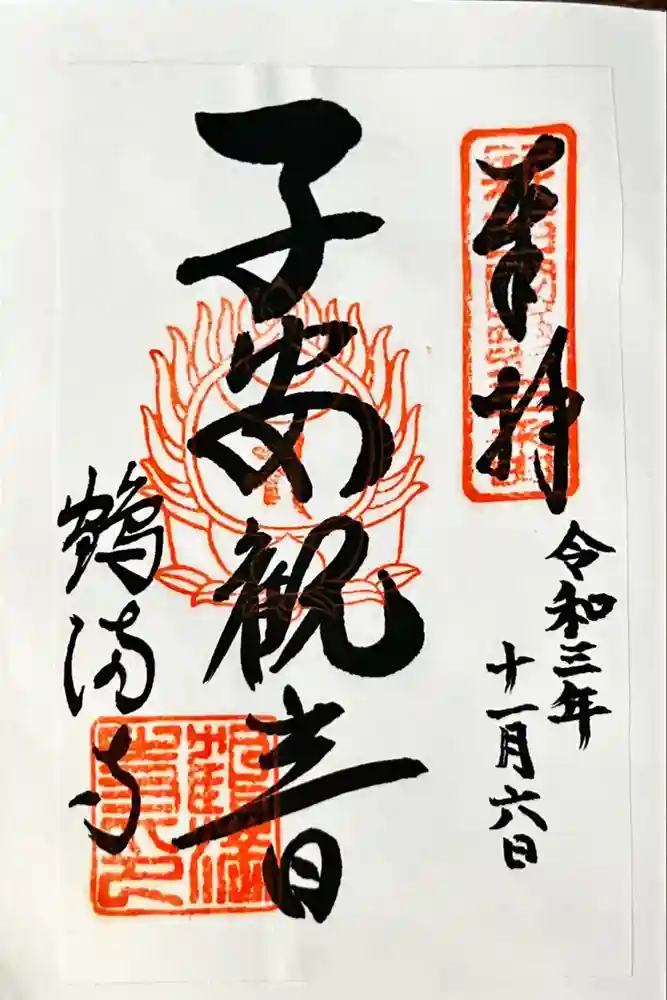 奉拝
令和三年
十一月六日
子安観音
鶴満寺